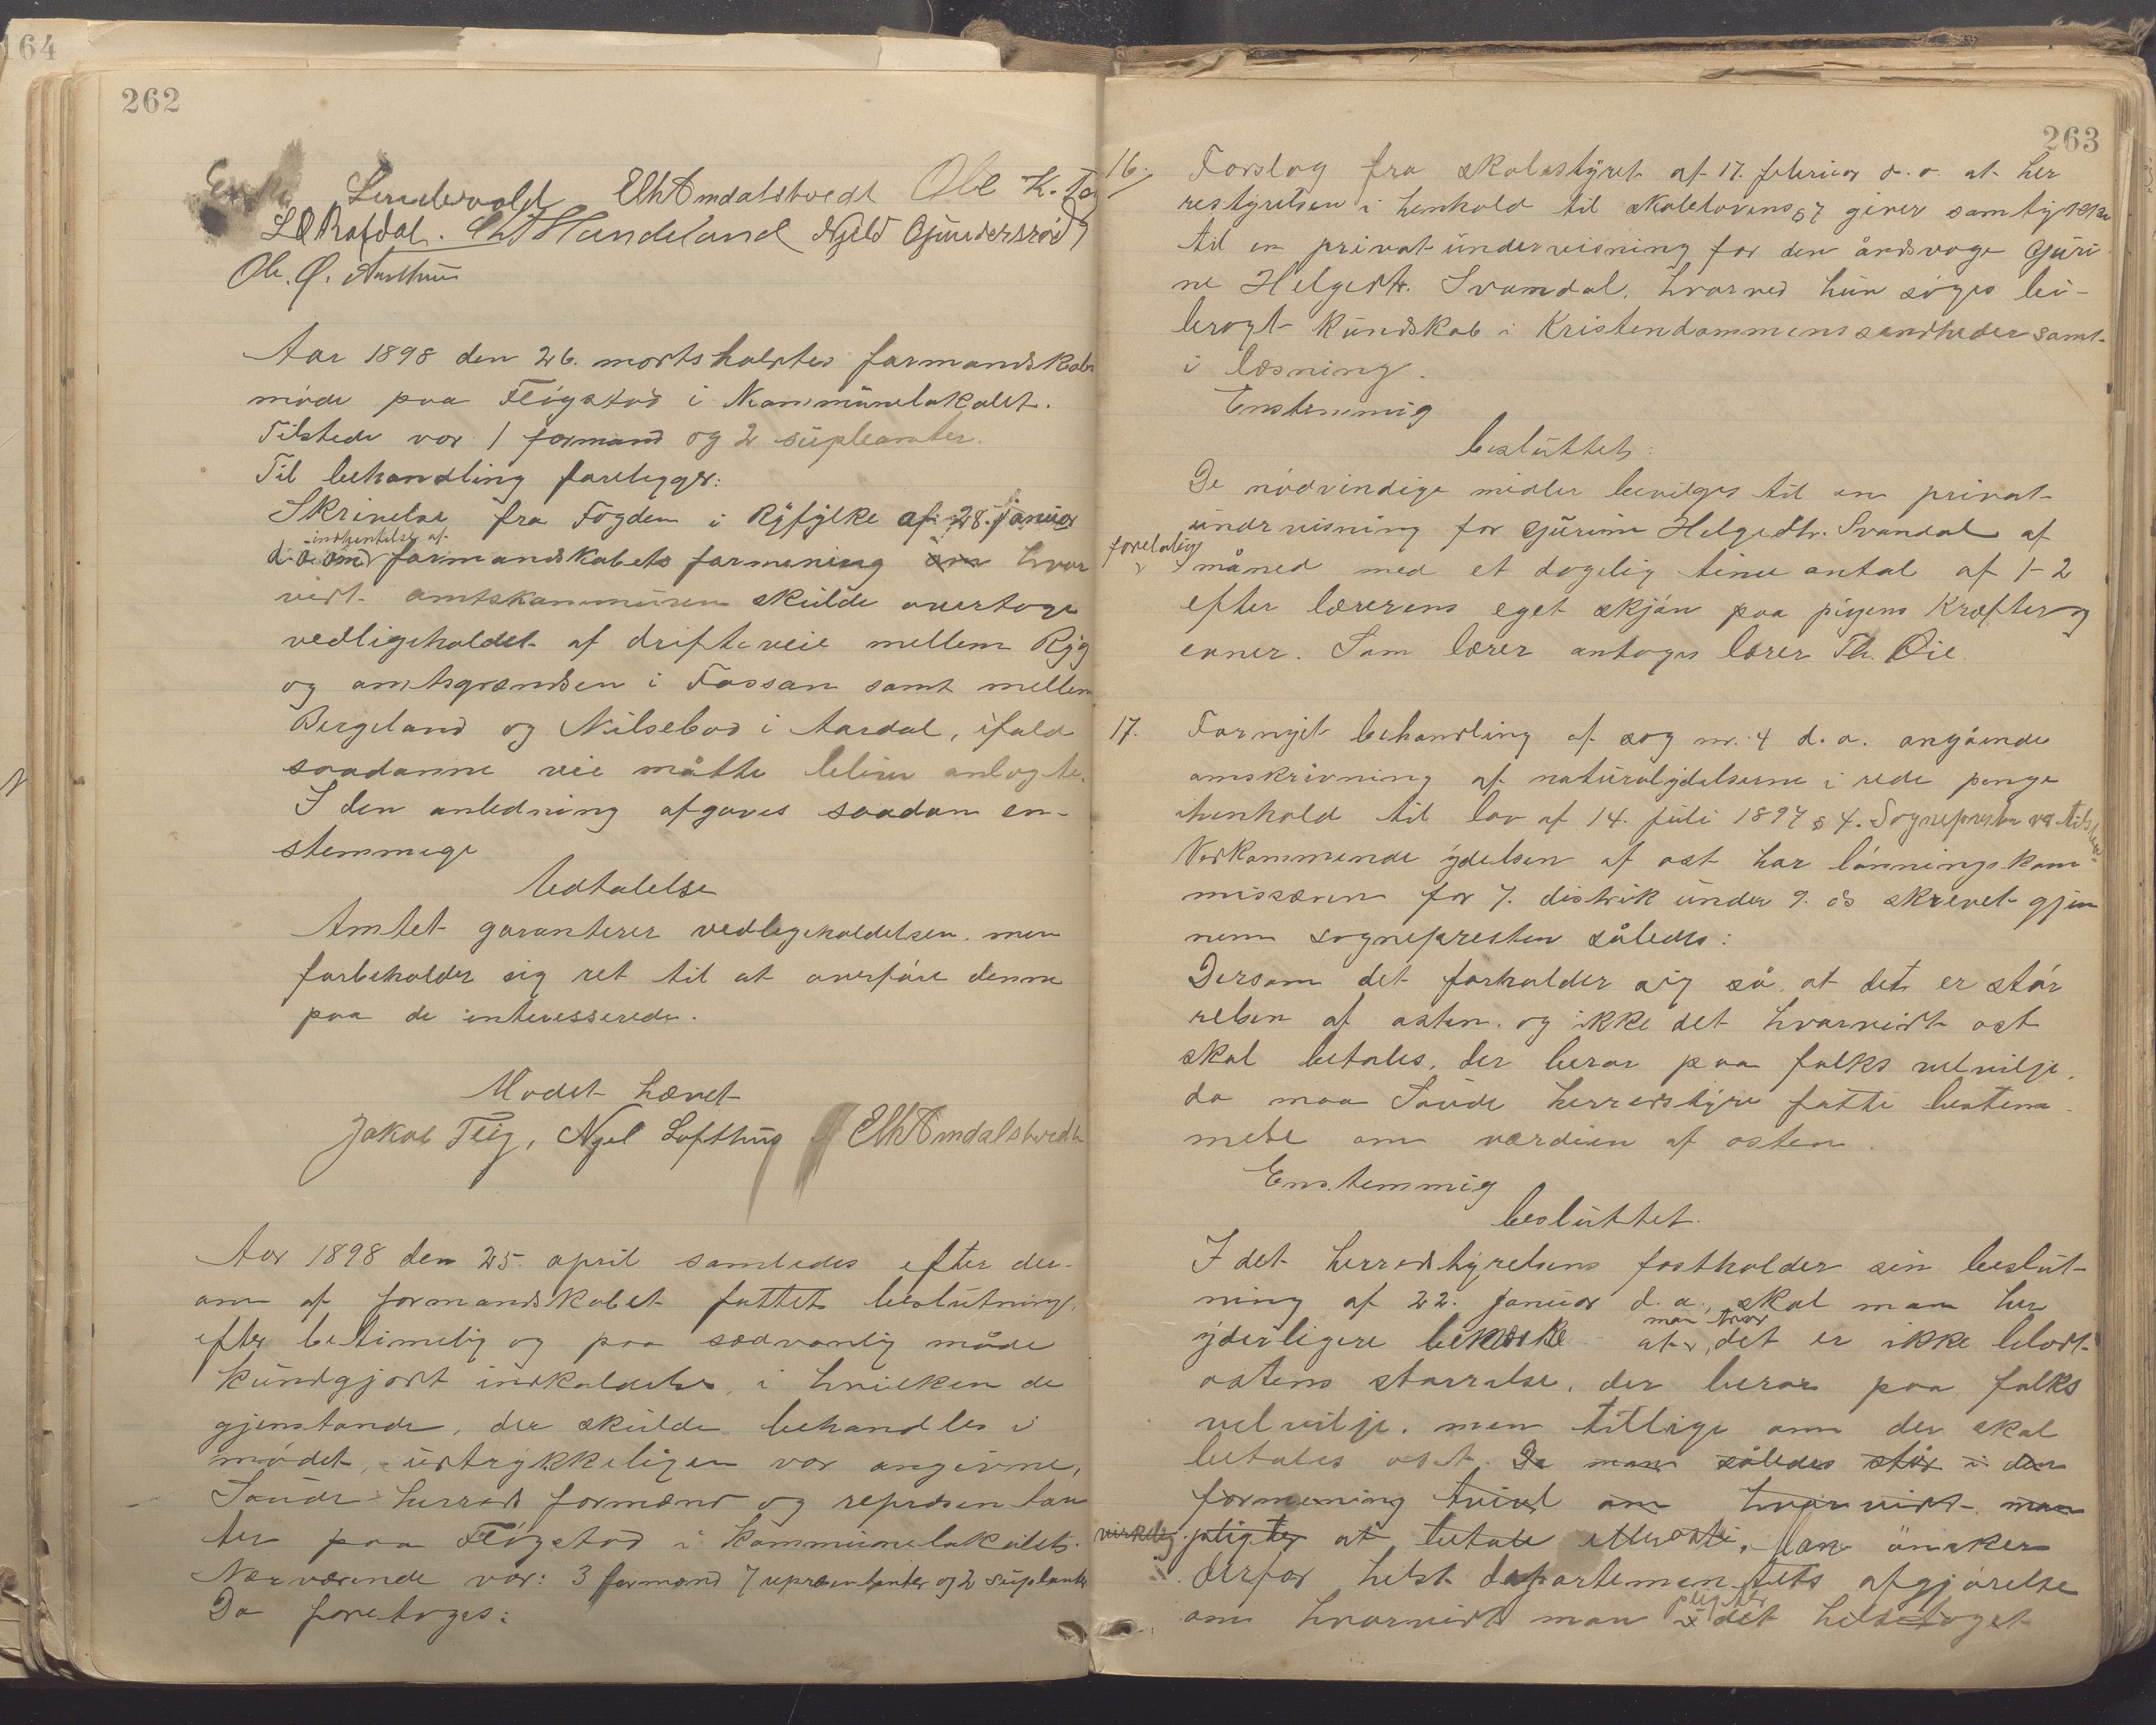 262
Lundevold ElhAmdalstvedt Ole K.
L O Rafdal. Handeland Njeld Gundersrød
Ole. Ø. Aarthun
Aar 1898 den 26. marts holdtes formandskabs
møde paa Fløgstad i Kommunelokalet.
Tilstede var 1 formand og 2 supleanter.
Til behandling foreligger:
Skrivelse fra Fogden i Ryfylke af 28. januar
indhentelse af
d. a. om formandskabets formening om hvor
vidt amtskommunen skulde overtage
vedligeholdet af drifteveie mellem Røg
og amtsgrændsen i Fossan samt mellem
Bergeland og Nilsebod i Aardal, ifald
saadanne veie måtte bline anlagte.
I den anledning afgaves saadan en-
stemmige
Udtalelse
Amtet garanterer vedligeholdelsen men
forbeholder sig ret til at overføre denne
paa de interesserede.
Modet hævet
Jakob Fløg, Njel Lofthus ElhAmdalstvedt
Aar 1898 den 25. april samledes efter der-
om af formandskabet fattet beslutning,
efter betimelig og paa sædvanlig måde
kundgjort indkaldelse, i hvilken de
gjenstande, der skulde behandles i
mødet, udtrykkeligen var angivne,
Saude herreds formænd og repræsentan
ter paa Fløgstad i kommunelokalet.
Nærværende var: 3 formænd 7 repræsentanter og 2 suplanter
Da foretoges:
263
16. Forslag fra skolestyret af 17. februar d. a. at her
restyrelsen i henhold til skolelovens § 7 giver samtykke
til en privat undervisning for den åndsvage Guri
ne Helgedtr. Svandal, hvorved hun søges bi-
bragt kundskab i Kristendommens sandheder samt
i læsning.
Enstemmig
besluttet:
De nødvendige midler bevilges til en privat
undrvisning for Gurine Helgedtr. Svandal af
foreløbig
måned med et dagelig time antal af 1-2
efter lærerens eget skjøn paa pigens Kræfter og
evner. Som lærer antoges lærer Th. Øie.
17. Fornyet behandling af sag nr. 4 d. a. angående
omskrivning af naturalydelserne i rede penge
i henhold til lov af 14. juli 1897 § 4. Sognepresten var tilstede.
Vedkommende ydelsen af ost har lønningskom
missæren for 7. distrik under 9. ds skrevet gjen
nem sognepresten således:
Dersom det forholder sig så, at det er stør
relsen af osten, og ikke det hvorvidt ost
skal betales, der beror paa folks velvilje,
da maa Saude herredstyre fatte bestem
melse om værdien af osten.
Enstemmig
besluttet.
I det herredstyrelsens fastholder sin beslut-
ning af 22. januar d. a., skal man her
man tror
yderligere bemærke at, det er ikke blodt
ostens størrelse, der beror paa folks
velvilje, men tillige om der skal
betales ost. Da man således står i den
formening tvivl om hvorvidt man
virkelig pligter at betale Man ønsker
derfor helst departementets afgjørelse
pligter
om hvorvidt man i det heletaget